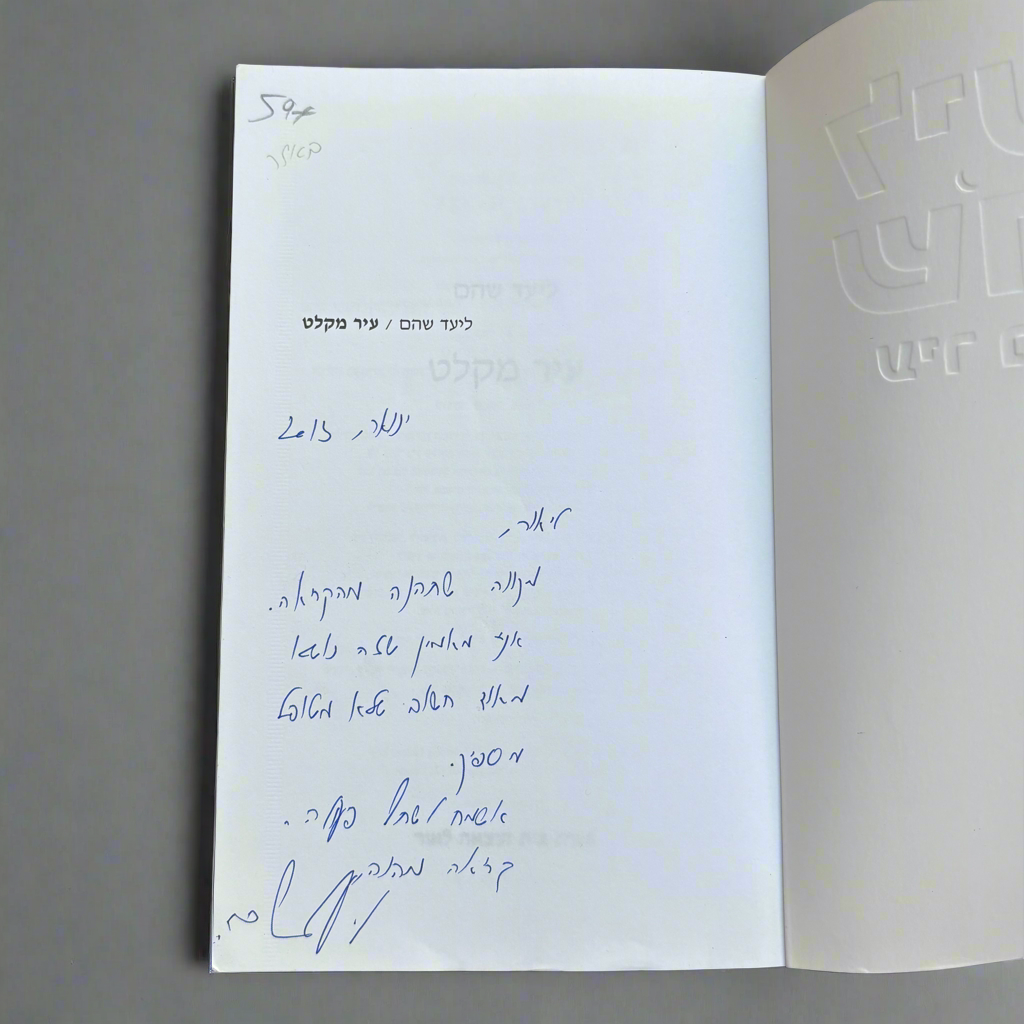 59
ליעד שהם / עיר מקלט
ינואר, 2013
ליאור,
מקווה שתהנה מהקריאה.
אני מאמין שזה נושא
מאוד חשוב שלא מטופל
מספיק.
אשמח לשתף פעולה.
קריאה מהנה,